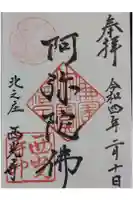 奉拝
令和四年二月十日
阿弥陀佛
北ノ庄
西光寺